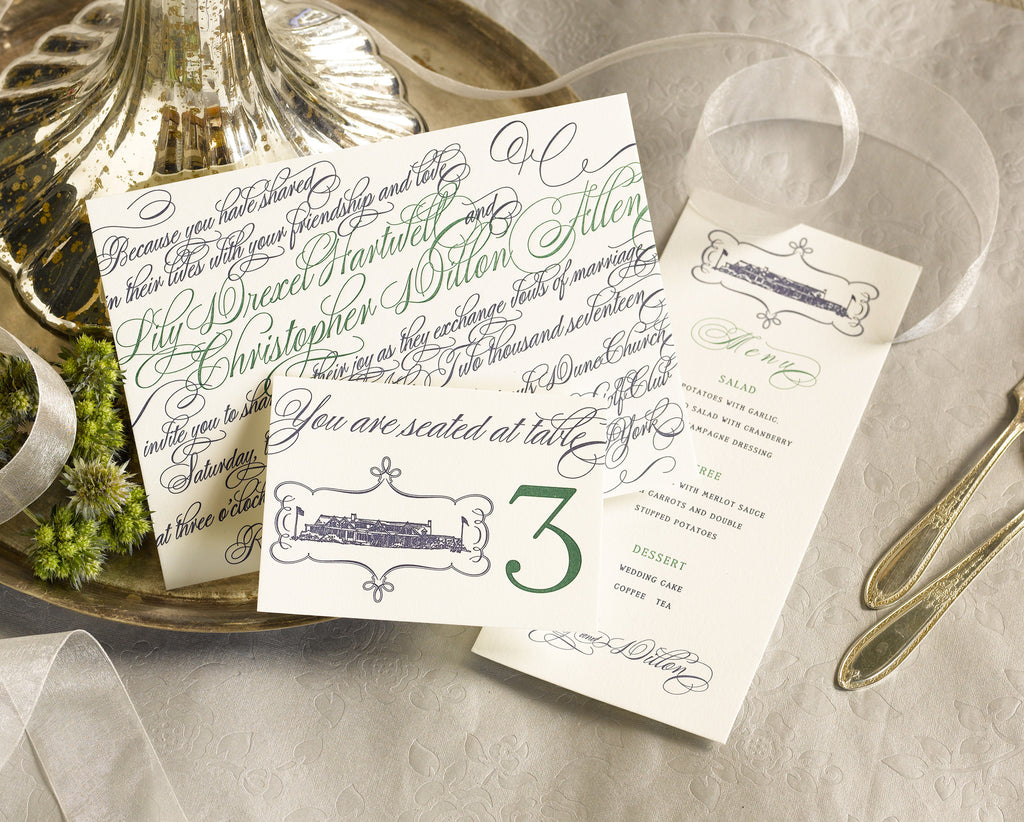 Because you have shared
in their lives with your friendship and love
Lily Drexel Hartwell and
Christopher Dillon Allen
invite you to shar their joy as they exchange vows of marriage
Saturday, Two thousand seventeen
at three o'clock Dune Church
Golf Club
York
You are seated at table
3
Menu
SALAD
POTATOES WITH GARLIC,
SALAD WITH CRANBERRY
CHAMPAGNE DRESSING
WITH MERLOT SAUCE
CARROTS AND DOUBLE
STUFFED POTATOES
DESSERT
WEDDING CAKE
COFFEE TEA
and Dillon